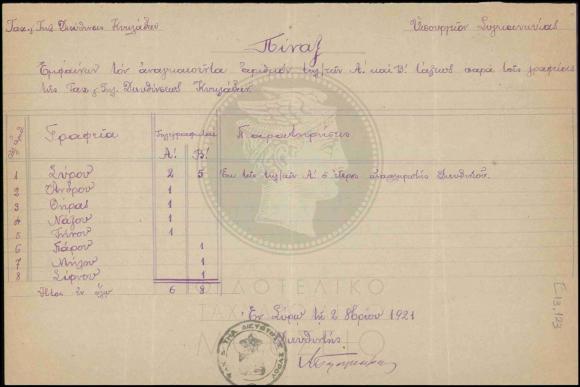 Ταχ. Τηλ. Διεύθυνσις Κυκλάδων
Υπουργείον Συγκοινωνίας
Πίναξ
Εμφαίνων τον αναγκαιούντα αριθμόν τηλ/τών Α! και Β! τάξεως παρά τοις γραφείοις
της Ταχ. Τηλ. Διευθύνσεως Κυκλάδων
Γραφεία Τηλεγραφηταί Παρατηρήσεις
Α! Β!
1 Σύρου 2 5 Εκ των τηλ/τών Α! ο έτερος Διευθυντού.
2 Άνδρου 1
3 Θήρας 1
4 Νάξου 1
5 Τήνου 1
6 Πάρου 1
7 Μήλου 1
8 Σίφνου 1
Ήτοι εν όλω 6 8
Εν Σύρω τη 2 8βρίου 1921
Ο Διευθυντής
Γ13.123
ΤΑΧ